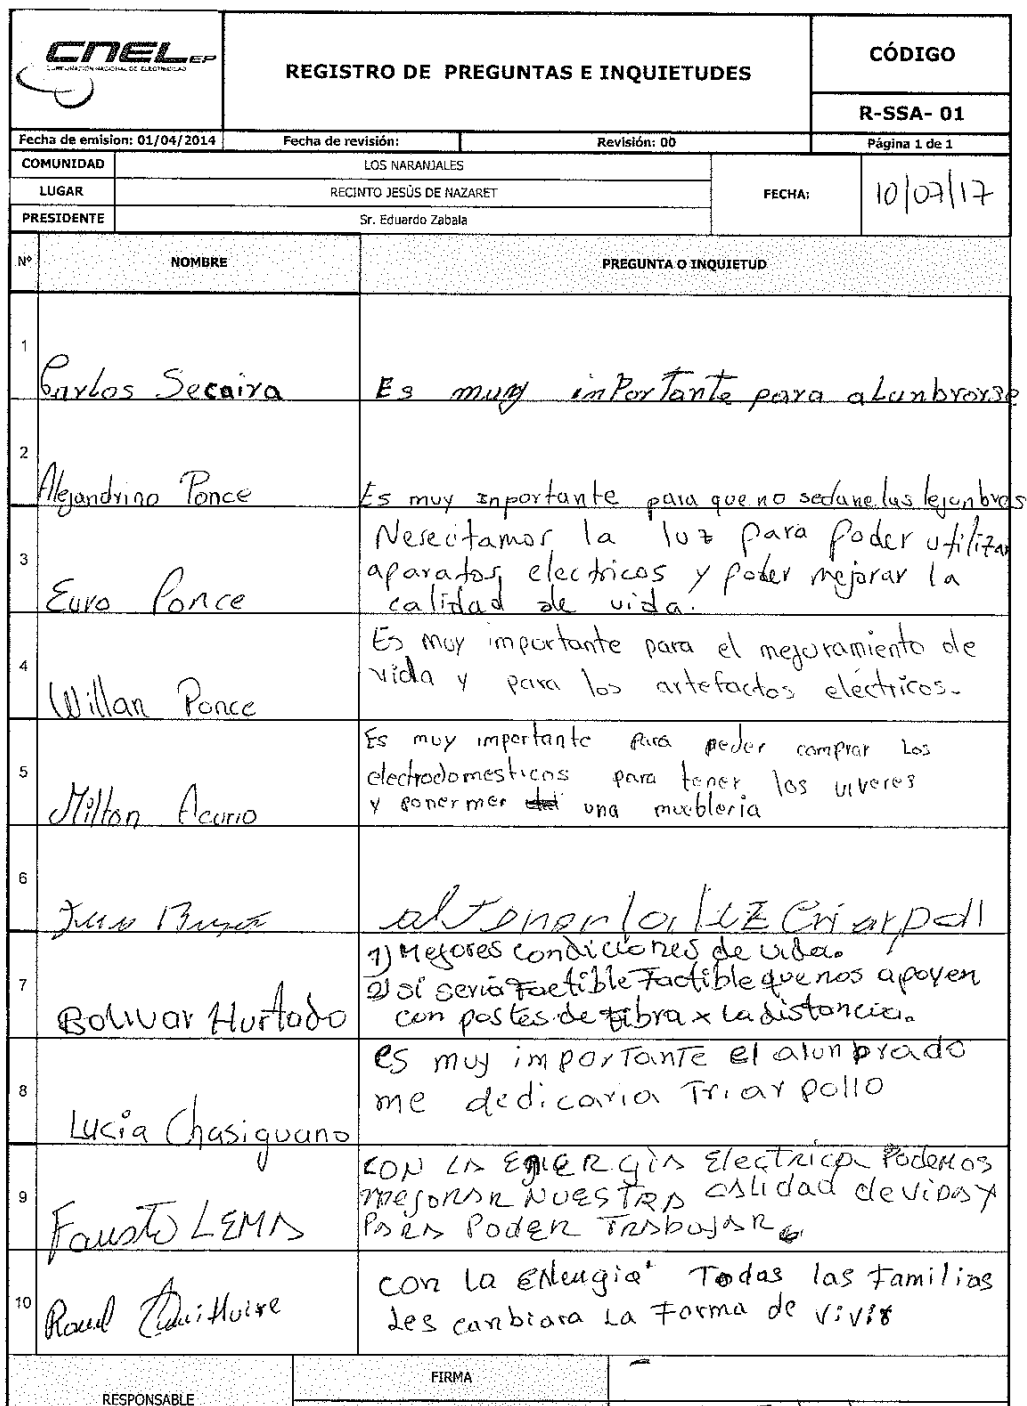 CNEL EP
CORPORACIÓN NACIONAL DE ELECTRICIDAD
REGISTRO DE PREGUNTAS E INQUIETUDES
CÓDIGO
R-SSA- 01
Fecha de emision: 01/04/2014 Fecha de revisión: Revisión: 00 Página 1 de 1
COMUNIDAD LOS NARANJALES
LUGAR RECINTO JESÚS DE NAZARET
FECHA: 10/07/17
PRESIDENTE Sr. Eduardo Zabala
Nº NOMBRE PREGUNTA O INQUIETUD
1 Carlos Secaira Es muy inPorTanTe para aLunbrorse
2 Alejandrino Ponce Es muy inportante para que no sedane las lejunbres
3 Euro Ponce
Nesecitamos la luz para poder utilizar
aparatos electricos y poder mejorar la
calidad de vida.
4 Willan Ponce
Es muy importante para el mejoramiento de
vida y para los artefactos eléctricos.
5 Milton Acurio
Es muy importante para poder comprar Los
electrodomesticos para tener los viveres
y poner mer una muebleria
6 al Tener la luz Criar poll
7 Bolivar Hurtado
1) Mejores condiciones de vida.
2) si seria Factible Factible que nos apoyen
con postes de fibra x La distancia.
8 Lucia Chasiguano
es muy imporTanTe el alunbrado
me dedicaria Triar pollo
9 Fausto LEMA
CON LA ENERGIA ElecTRica Podemos
mejorar NUESTRA calidad de vida y
PARA PODER TRABAJAR
10 Raul
con La ENergia Todas las Familias
Les canbiara La Forma de vivir
RESPONSABLE FIRMA